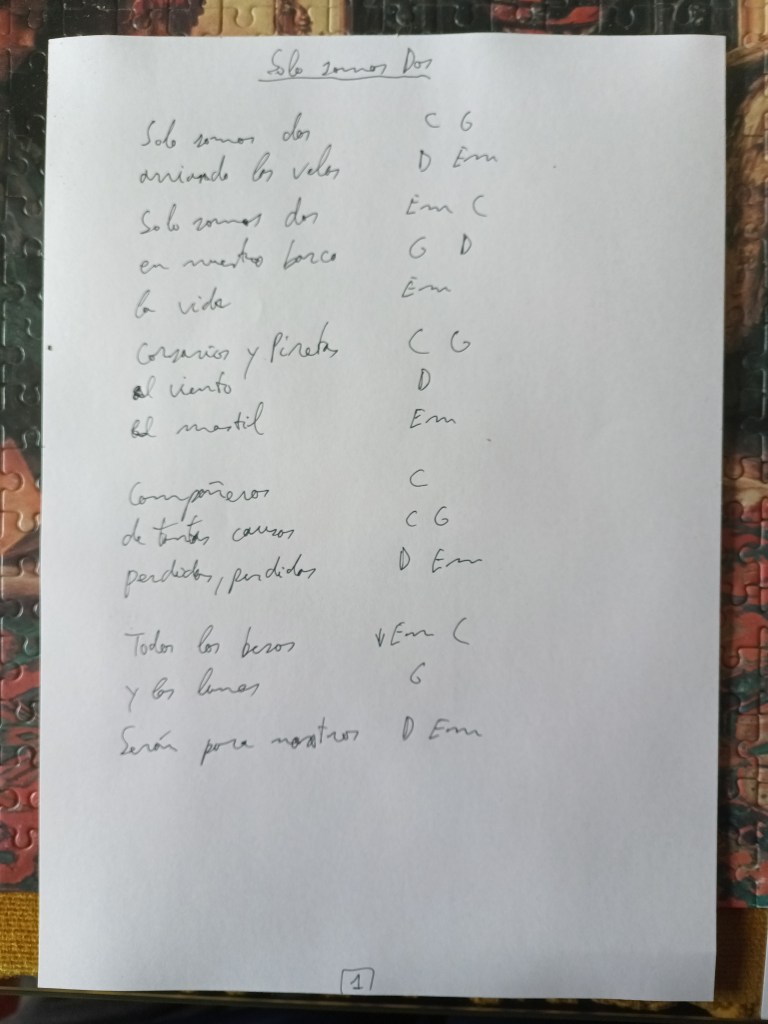 Solo somos Dos
Solo somos dos C G
arriando las velas D Em
Solo somos dos Em C
en nuestro barco G D
la vida Em
Corsarios y Piratas C G
al viento D
el mastil Em
Compañeros C
de tantas causas C G
perdidas, perdidas D Em
Todos los besos ↓Em C
y las lunas G
Serán para nosotros D Em
1